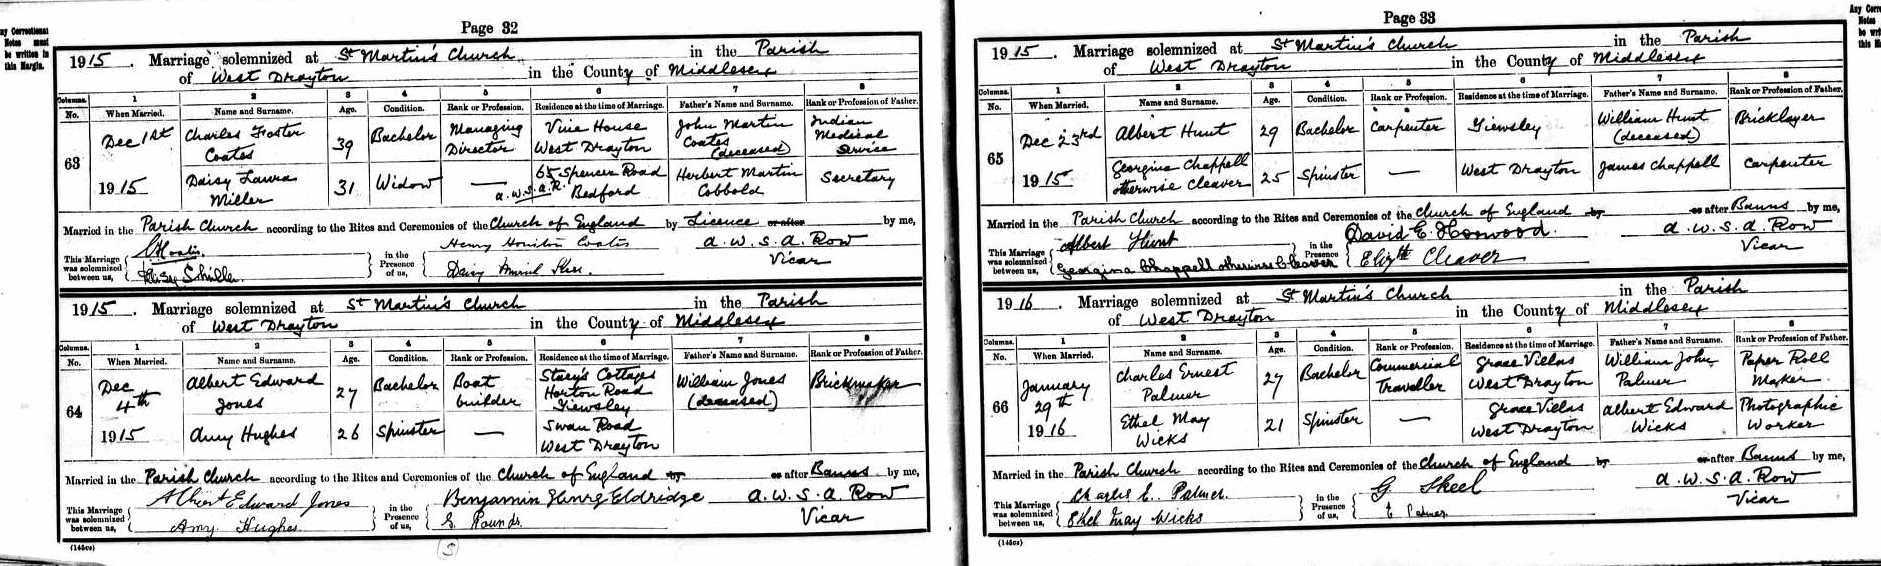 Page 32
1915. Marriage solemnized at St Martin's Church in the Parish
of West Drayton in the County of Middlesex
Columns. 1 2 3 4 5 6 7 8
No. When Married. Name and Surname. Age. Condition. Rank or Profession. Residence at the time of Marriage. Father's Name and Surname. Rank or Profession of Father.
63 Dec 1st 1915
Charles Foster Coates 39 Bachelor Managing Director Vine House West Drayton John Martin Coates (deceased) Indian Medical Service
Daisy Laura Miller 31 Widow — 65 Spencer Road Bedford Herbert Martin Cobbold Secretary
a.w.s.a.R.
Married in the Parish Church according to the Rites and Ceremonies of the Church of England by Licence or after by me,
This Marriage was solemnized between us,
in the Presence of us,
Henry Houston Coates
Daisy Muriel
A. W. S. A. Row
Vicar
1915. Marriage solemnized at St Martin's Church in the Parish
of West Drayton in the County of Middlesex
Columns. 1 2 3 4 5 6 7 8
No. When Married. Name and Surname. Age. Condition. Rank or Profession. Residence at the time of Marriage. Father's Name and Surname. Rank or Profession of Father.
64 Dec 4th 1915
Albert Edward Jones 27 Bachelor Boat builder Stacy's Cottages Horton Road Yiewsley William Jones (deceased) Brickmaker
Amy Hughes 26 Spinster — Swan Road West Drayton
Married in the Parish Church according to the Rites and Ceremonies of the Church of England by or after Banns by me,
This Marriage was solemnized between us,
Albert Edward Jones
Amy Hughes
in the Presence of us,
Benjamin Henry Eldridge
G. Pounds
A. W. S. A. Row
Vicar
(145cs)
5
Page 33
1915. Marriage solemnized at St Martin's Church in the Parish
of West Drayton in the County of Middlesex
Columns. 1 2 3 4 5 6 7 8
No. When Married. Name and Surname. Age. Condition. Rank or Profession. Residence at the time of Marriage. Father's Name and Surname. Rank or Profession of Father.
65 Dec 23rd 1915
Albert Hunt 29 Bachelor Carpenter Yiewsley William Hunt (deceased) Bricklayer
Georgina Chappell otherwise Cleaver 25 Spinster — West Drayton James Chappell Carpenter
Married in the Parish Church according to the Rites and Ceremonies of the Church of England by or after Banns by me,
This Marriage was solemnized between us,
Albert Hunt
Georgina Chappell otherwise Cleaver
in the Presence of us,
David E. Horwood.
Elizth Cleaver
A. W. S. A. Row
Vicar
1916. Marriage solemnized at St Martin's Church in the Parish
of West Drayton in the County of Middlesex
Columns. 1 2 3 4 5 6 7 8
No. When Married. Name and Surname. Age. Condition. Rank or Profession. Residence at the time of Marriage. Father's Name and Surname. Rank or Profession of Father.
66 January 29th 1916
Charles Ernest Palmer 27 Bachelor Commercial Traveller Grace Villas West Drayton William John Palmer Paper Roll Maker
Ethel May Wicks 21 Spinster — Grace Villas West Drayton Albert Edward Wicks Photographic Worker
Married in the Parish Church according to the Rites and Ceremonies of the Church of England by or after Banns by me,
This Marriage was solemnized between us,
Charles E. Palmer
Ethel May Wicks
in the Presence of us,
G. Skeel
E Palmer
A. W. S. A. Row
Vicar
(145cs)